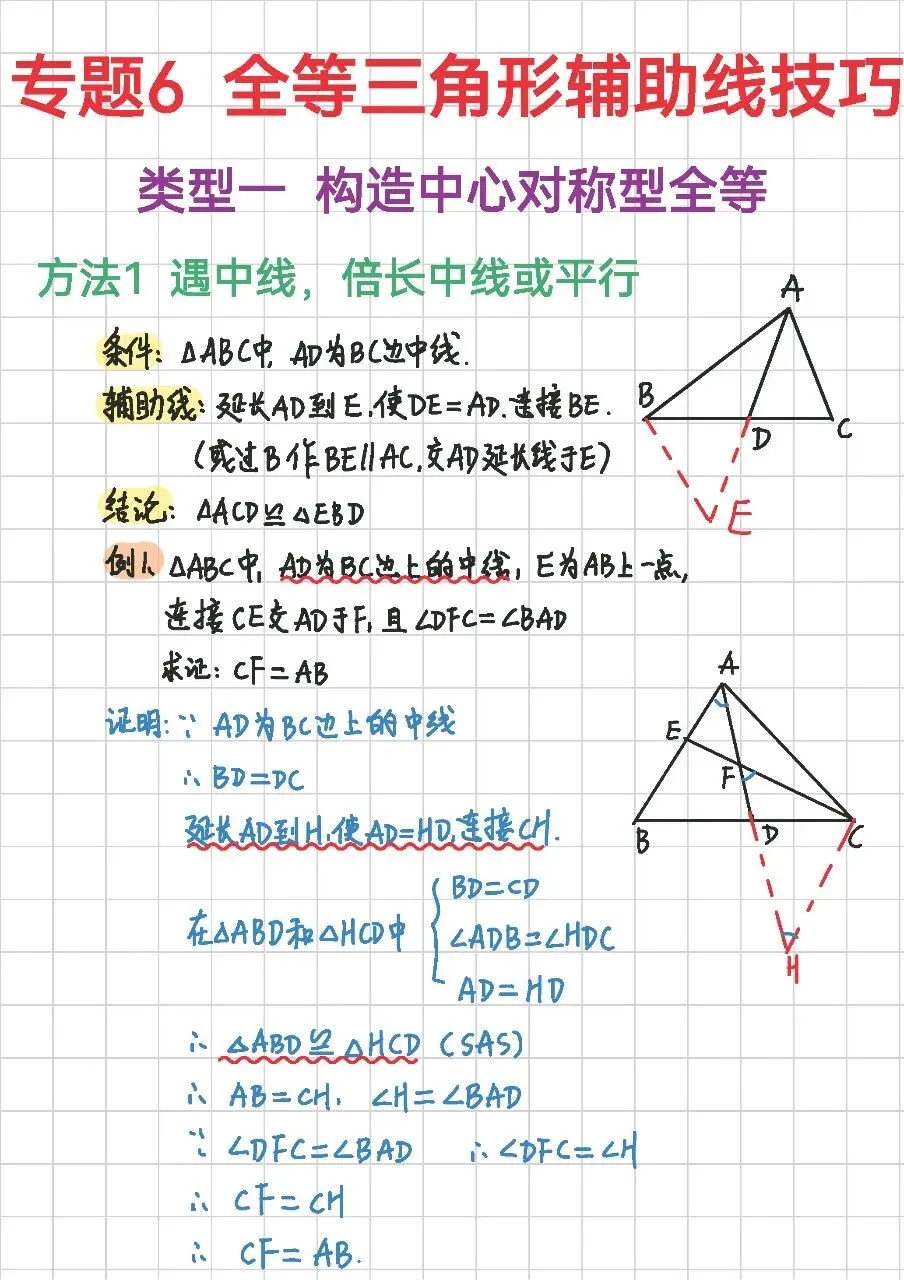 专题6 全等三角形辅助线技巧
类型一 构造中心对称型全等
方法1 遇中线，倍长中线或平行
条件：△ABC中，AD为BC边中线.
辅助线：延长AD到E，使DE=AD，连接BE.
（或过B作BE∥AC，交AD延长线于E）
结论：△ACD≌△EBD
A
B
D
C
E
例1、△ABC中，AD为BC边上的中线，E为AB上一点，
连接CE交AD于F，且∠DFC=∠BAD
求证：CF=AB
证明：∵ AD为BC边上的中线
∴ BD=DC
延长AD到H，使AD=HD，连接CH.
A
E
F
B
D
C
H
在△ABD和△HCD中
BD=CD
∠ADB=∠HDC
AD=HD
∴ △ABD≌△HCD（SAS）
∴ AB=CH，∠H=∠BAD
∵ ∠DFC=∠BAD ∴∠DFC=∠H
∴ CF=CH
∴ CF=AB.